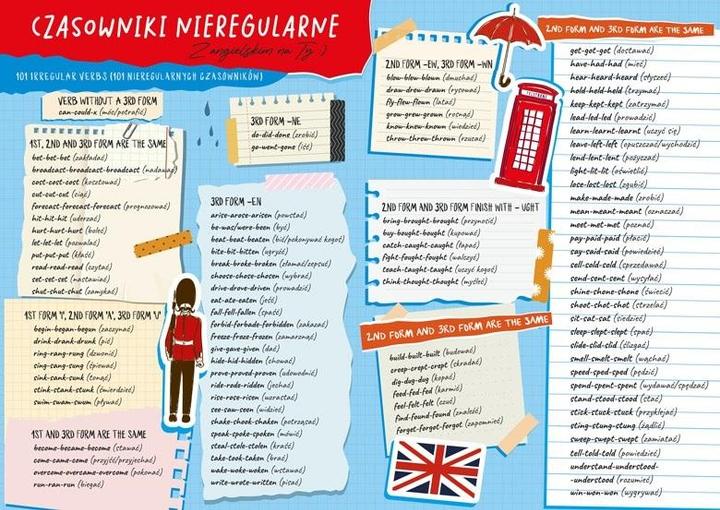 CZASOWNIKI NIEREGULARNE
Z angielskim na Ty :)
101 IRREGULAR VERBS (101 NIEREGULARNYCH CZASOWNIKÓW)
VERB WITHOUT A 3RD FORM
can-could-x (móc/potrafić)
1ST, 2ND AND 3RD FORM ARE THE SAME
bet-bet-bet (zakładać)
broadcast-broadcast-broadcast (nadawać)
cost-cost-cost (kosztować)
cut-cut-cut (ciąć)
forecast-forecast-forecast (prognozować)
hit-hit-hit (uderzać)
hurt-hurt-hurt (boleć)
let-let-let (pozwalać)
put-put-put (kłaść)
read-read-read (czytać)
set-set-set (nastawiać)
shut-shut-shut (zamykać)
1ST FORM 'I', 2ND FORM 'A', 3RD FORM 'U'
begin-began-begun (zaczynać)
drink-drank-drunk (pić)
ring-rang-rung (dzwonić)
sing-sang-sung (śpiewać)
sink-sank-sunk (tonąć)
stink-stank-stunk (śmierdzieć)
swim-swam-swum (pływać)
1ST AND 3RD FORM ARE THE SAME
become-became-become (stawać)
come-came-come (przyjść/przyjechać)
overcome-overcame-overcome (pokonać)
run-ran-run (biegać)
3RD FORM -NE
do-did-done (zrobić)
go-went-gone (iść)
3RD FORM -EN
arise-arose-arisen (powstać)
be-was/were-been (być)
beat-beat-beaten (bić/pokonywać kogoś)
bite-bit-bitten (ugryźć)
break-broke-broken (złamać/zepsuć)
choose-chose-chosen (wybrać)
drive-drove-driven (prowadzić)
eat-ate-eaten (jeść)
fall-fell-fallen (spaść)
forbid-forbade-forbidden (zakazać)
freeze-froze-frozen (zamarznąć)
give-gave-given (dać)
hide-hid-hidden (chować)
prove-proved-proven (udowodnić)
ride-rode-ridden (jechać)
rise-rose-risen (wzrastać)
see-saw-seen (widzieć)
shake-shook-shaken (potrząsać)
speak-spoke-spoken (mówić)
steal-stole-stolen (kraść)
take-took-taken (brać)
wake-woke-woken (wstawać)
write-wrote-written (pisać)
2ND FORM -EW, 3RD FORM -WN
blow-blew-blown (dmuchać)
draw-drew-drawn (rysować)
fly-flew-flown (latać)
grow-grew-grown (rosnąć)
know-knew-known (wiedzieć)
throw-threw-thrown (rzucać)
2ND FORM AND 3RD FORM FINISH WITH - UGHT
bring-brought-brought (przynosić)
buy-bought-bought (kupować)
catch-caught-caught (łapać)
fight-fought-fought (walczyć)
teach-taught-taught (uczyć kogoś)
think-thought-thought (myśleć)
2ND FORM AND 3RD FORM ARE THE SAME
build-built-built (budować)
creep-crept-crept (skradać)
dig-dug-dug (kopać)
feed-fed-fed (karmić)
feel-felt-felt (czuć)
find-found-found (znaleźć)
forget-forgot-forgot (zapomnieć)
2ND FORM AND 3RD FORM ARE THE SAME
get-got-got (dostawać)
have-had-had (mieć)
hear-heard-heard (słyszeć)
hold-held-held (trzymać)
keep-kept-kept (zatrzymać)
lead-led-led (prowadzić)
learn-learnt-learnt (uczyć się)
leave-left-left (opuszczać/wychodzić)
lend-lent-lent (pożyczać)
light-lit-lit (oświetlić)
lose-lost-lost (zgubić)
make-made-made (zrobić)
mean-meant-meant (oznaczać)
meet-met-met (poznać)
pay-paid-paid (płacić)
say-said-said (powiedzieć)
sell-sold-sold (sprzedawać)
send-sent-sent (wysyłać)
shine-shone-shone (świecić)
shoot-shot-shot (strzelać)
sit-sat-sat (siedzieć)
sleep-slept-slept (spać)
slide-slid-slid (ślizgać)
smell-smelt-smelt (wąchać)
speed-sped-sped (pędzić)
spend-spent-spent (wydawać/spędzać)
stand-stood-stood (stać)
stick-stuck-stuck (przyklejać)
sting-stung-stung (żądlić)
sweep-swept-swept (zamiatać)
tell-told-told (powiedzieć)
understand-understood-
-understood (rozumieć)
win-won-won (wygrywać)